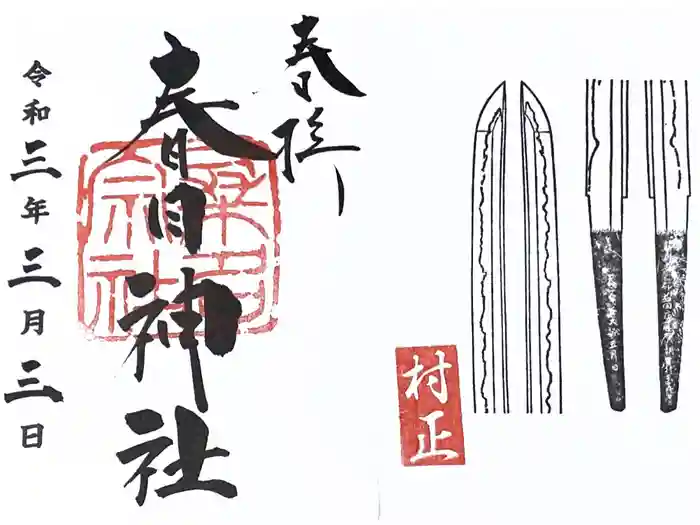 奉拝
春日神社
令和三年三月三日
桑名宗社
村正